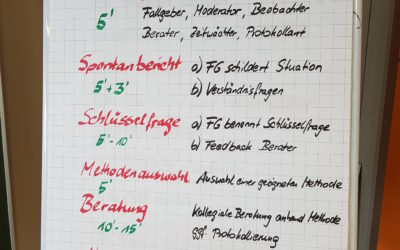 Fallgeber, Moderator, Beobachter
5'
Berater, Zeitwächter, Protokollant
Spontanbericht a) FG schildert Situation
5'+3' b) Verständnisfragen
Schlüsselfrage a) FG benennt Schlüsselfrage
5'-10' b) Feedback Berater
Methodenauswahl Auswahl einer geeigneten Methode
5'
Beratung Kollegiale Beratung anhand Methode
10'-15' ggf. Protokollierung